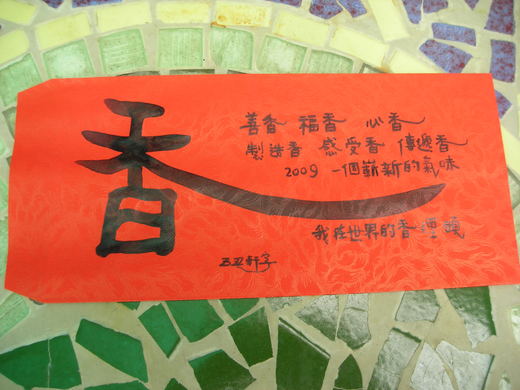 香
善香 福香 心香
製造香 感受香 傳遞香
2009 一個嶄新的氣味
我在世界的香埋頭